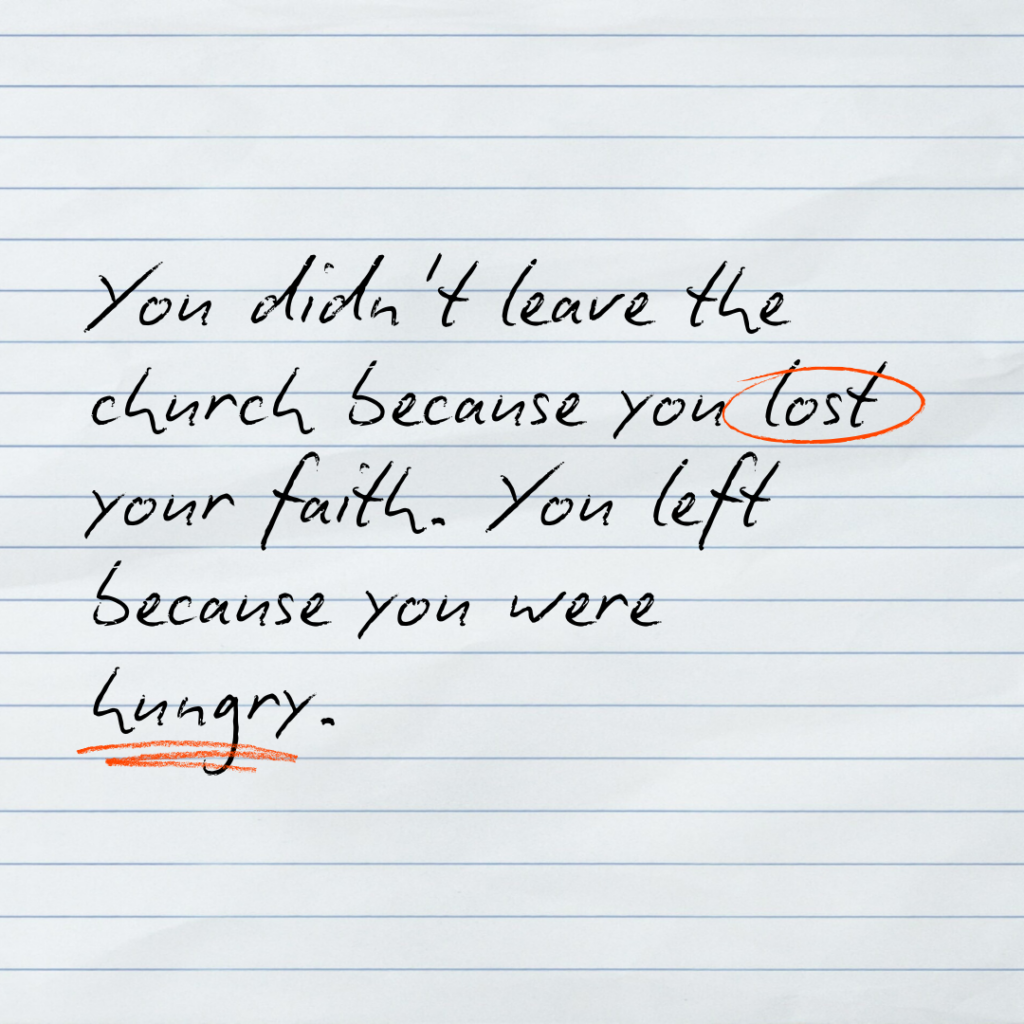 You didn't leave the
church because you lost
your faith. You left
because you were
hungry.